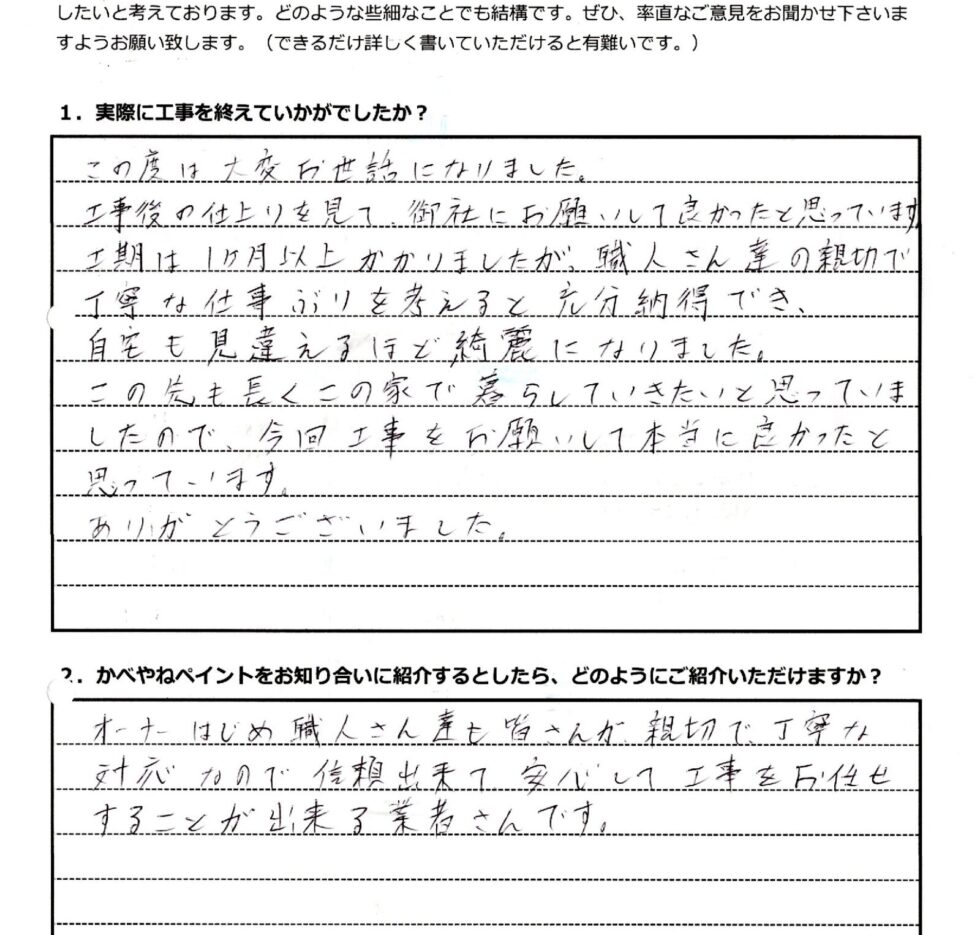 したいと考えております。どのような些細なことでも結構です。ぜひ、率直なご意見をお聞かせ下さいま
すようお願い致します。（できるだけ詳しく書いていただけると有難いです。）
１．実際に工事を終えていかがでしたか？
この度は大変お世話になりました。
工事後の仕上りを見て、御社にお願いして良かったと思っています
工期は1ヶ月以上かかりましたが、職人さん達の親切で
丁寧な仕事ぶりを考えると充分納得でき、
自宅も見違えるほど綺麗になりました。
この先も長くこの家で暮らしていきたいと思っていま
したので、今回工事をお願いして本当に良かったと
思っています。
ありがとうございました。
２．かべやねペイントをお知り合いに紹介するとしたら、どのようにご紹介いただけますか？
オーナーはじめ職人さん達も皆さんが、親切で、丁寧な
対応なので信頼出来て安心して工事をお任せ
することが出来る業者さんです。